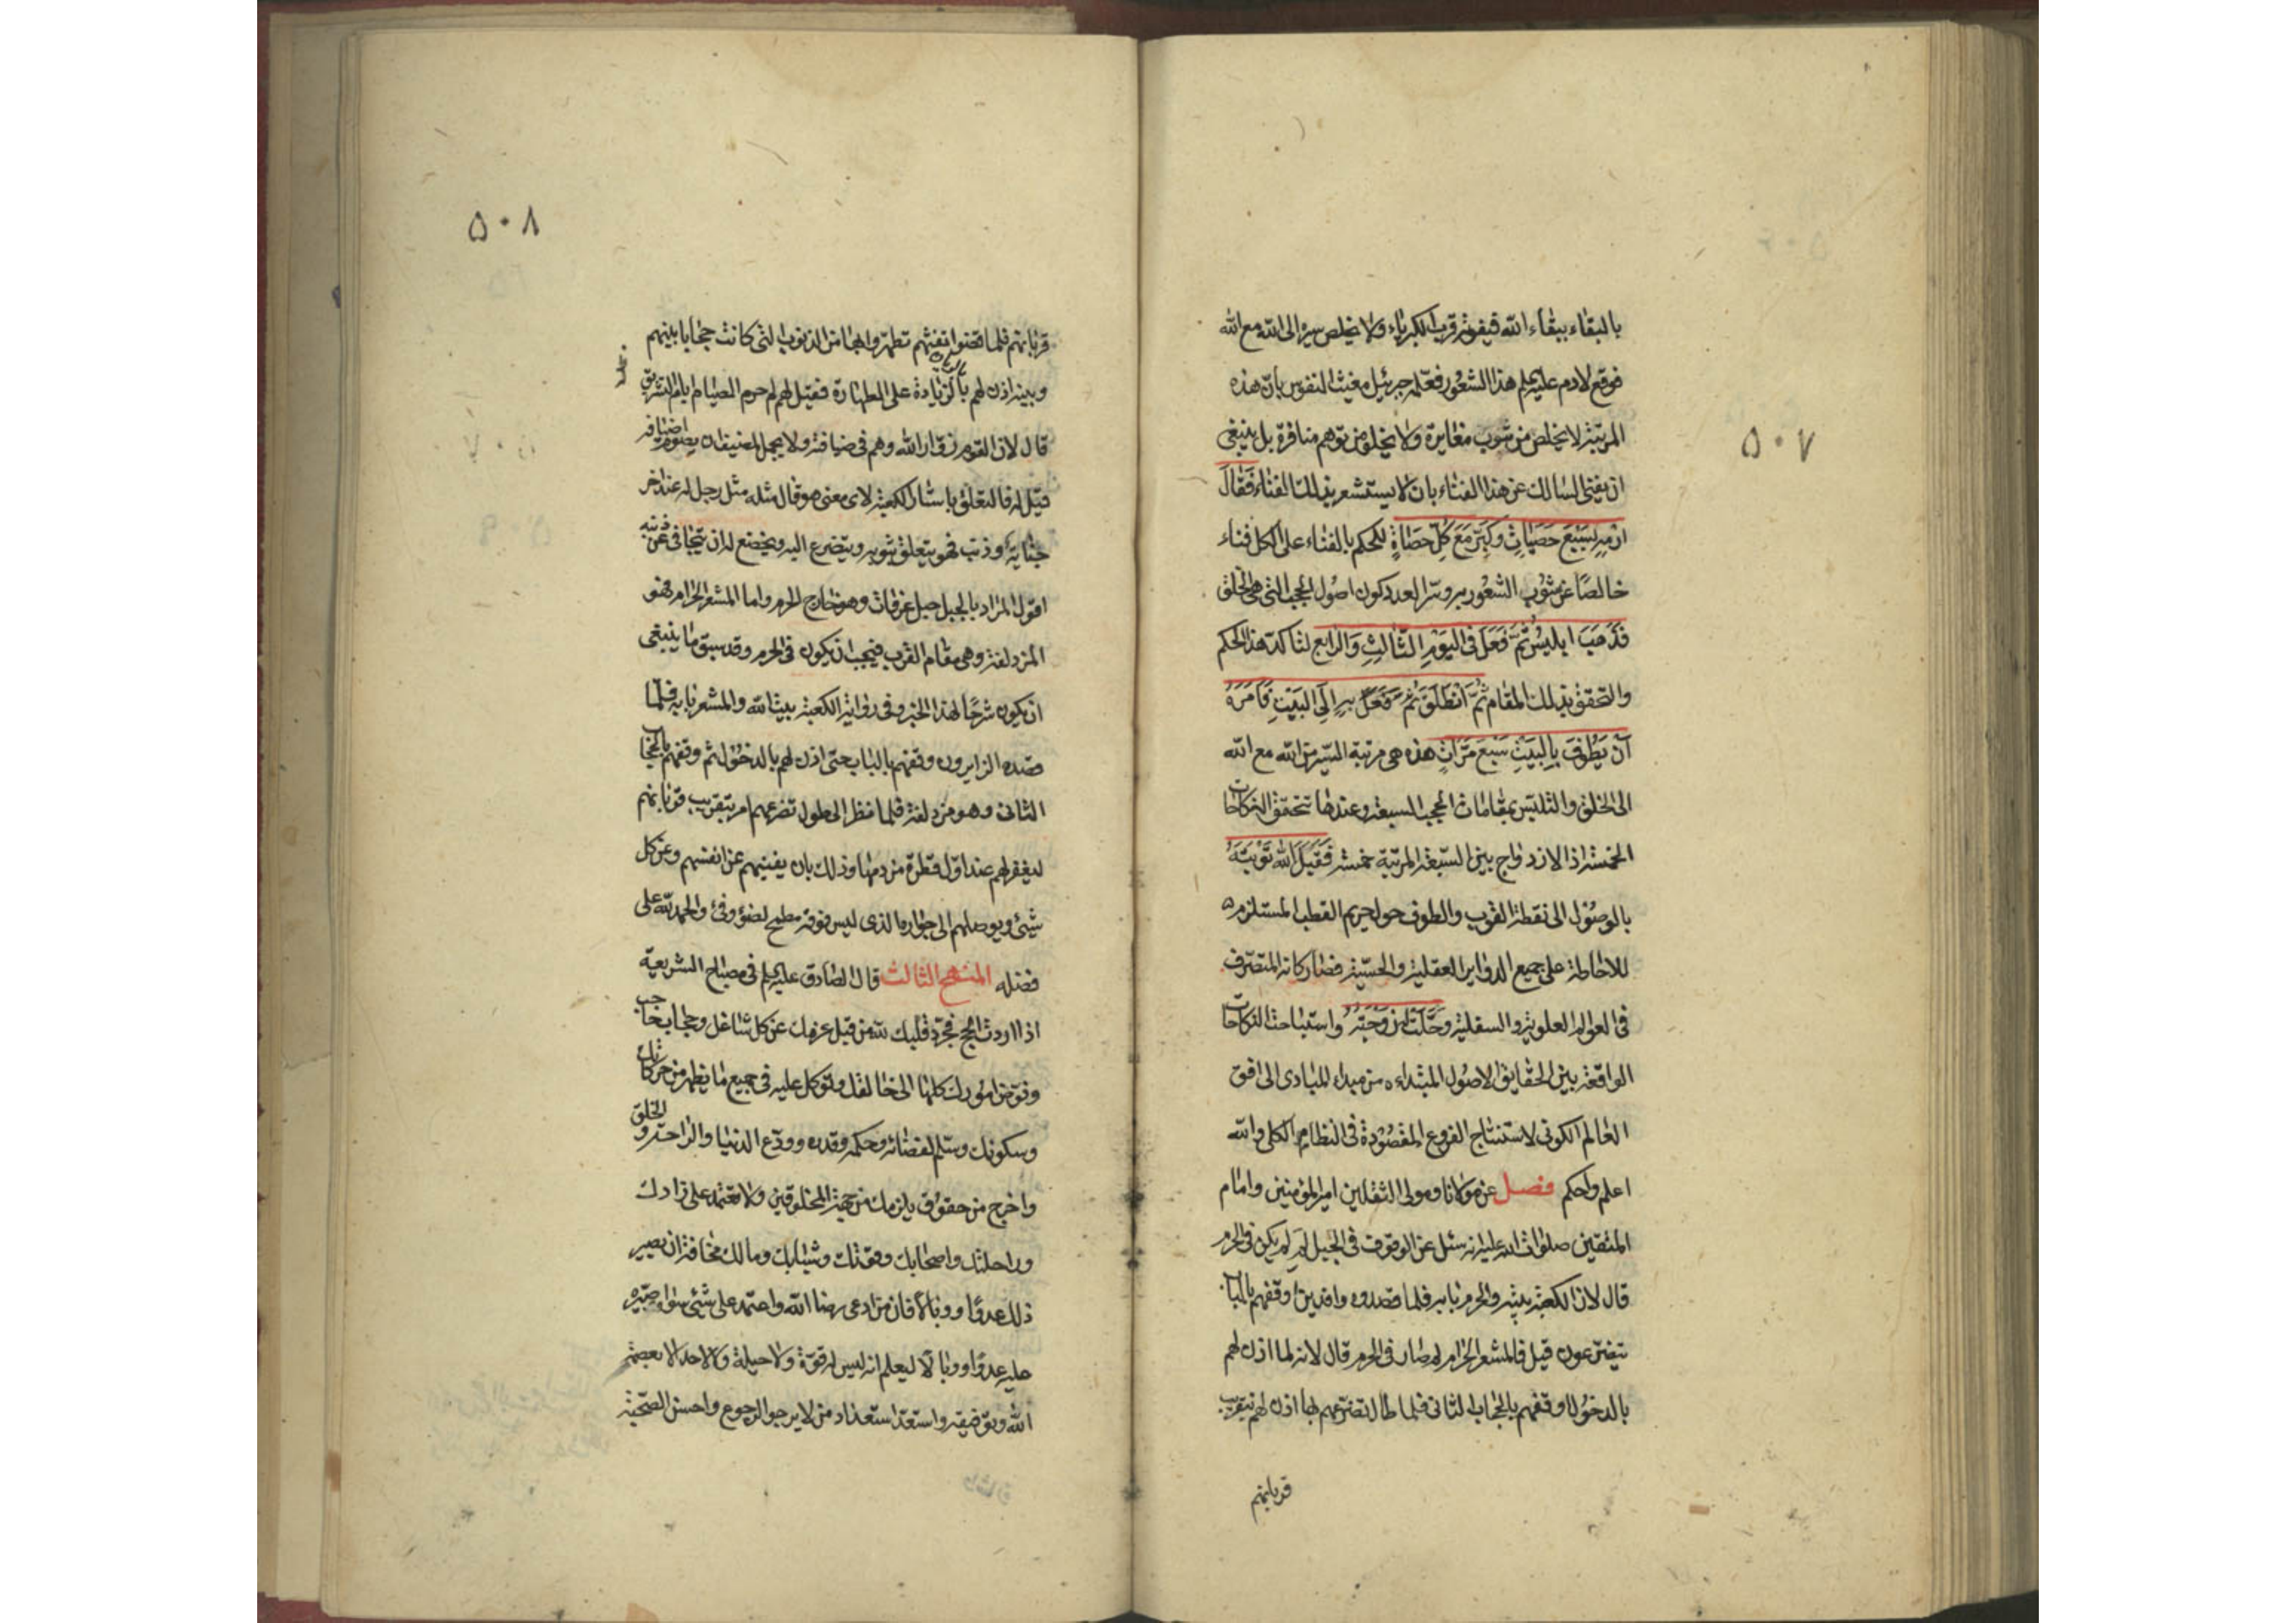 ٥٠٧
بالبقاء ببقاء الله فيفوته قرب الكبرياء ولا يخلص سيره الى الله مع الله
فوقع لادم عليه السلم هذا الشعور فعلمه جبرئيل مغيث النفوس بان هذه
المرتبة لا يخلص من شوب مغايرة ولا يخلو من توهم منافرة بل ينبغي
ان يفنى السالك عن هذا الفناء بان لا يستشعر بذلك الفناء فَقالَ
ارْمِهِ بِسَبْعِ حَصَياتٍ وَكَبِّرْ مَعَ كُلِّ حَصاةٍ ليحكم بالفناء على الكل فناء
خالصًا عن شوب الشعور به وسر العدد كون اصول الحجب التي هي الخلق
فَذَهَبَ ابليسُ ثُمَّ فَعَلَ فى اليَوْمِ الثّالِثِ وَالرّابِعِ لتاكد هذا الحكم
والتحقق بذلك المقام ثُمَّ انْطَلَقَ بِهِ اِلَى البَيْتِ فَاَمَرَهُ
اَنْ يَطُوفَ بِالبَيْتِ سَبْعَ مَرّاتٍ هذه هي مرتبة السير من الله مع الله
الى الخلق والتلبس بمقامات الحجب السبعة وعندها تتحقق النكاحات
الخمسة اذ الازدواج بين السبعة المرتبة خمسة فَقَبِلَ اللهُ تَوْبَتَهُ
بالوصول الى نقطة القرب والطوف حول حريم القطب المستلزمه
للاحاطة على جميع الدواير العقلية والحسية فصار كانه المتصرف
فى العوالم العلوية والسفلية وحَلَّتْ له زَوْجَتُهُ واستباحت النكاحات
الواقعة بين الحقايق الاصول المبتداءه من مبداء المبادى الى افق
العالم الكونى لاستنتاج الفروع المقصودة فى النظام الكلى والله
اعلم واحكم فصل عن مولانا ومولى الثقلين امير المؤمنين وامام
المتقين صلوات الله عليه انه سئل عن الوقوف فى الجبل لِمَ لم يكن فى الحرم
قال لان الكعبة بيته والحرم بابه فلما قصدوه وافدين اوقفهم بالباب
يتضرعون قيل فالمشعر الحرام لم صار فى الحرم قال لانه لما اذن لهم
بالدخول اوقفهم بالحجاب الثانى فلما طال تضرعهم بها اذن لهم بتقريب
قربانهم
٥٠٨
قربانهم فلما قضوا تفثهم تطهروا بها من الذنوب التى كانت حجابا بينهم
وبينه اذن لهم بالزيادة على الطهارة فقيل لهم لم حرم الصيام ايام التشريق
قال لان القوم زوّار الله وهم فى ضيافته ولا يجمل لمضيف ان يصوم اضيافه
قيل له فالتعلق باستار الكعبة لاى معنى هو قال مثله مثل رجل له عند اخر
جناية وذنب فهو يتعلق بثوبه ويتضرع اليه ويخضع له ان يتجافى عن ذنبه
اقول المراد بالجبل جبل عرفات وهو خارج الحرم واما المشعر الحرام فهو
المزدلفة وهى مقام القرب فيجب ان يكون فى الحرم وقد سبق ما ينبغى
ان يكون شرحًا لهذا الخبر وفى رواية الكعبة بيت الله والمشعر بابه فلما
قصده الزايرون وقفهم بالباب حتى اذن لهم بالدخول ثم وقفهم بالحجاب
الثانى وهو مزدلفة فلما نظر الى طول تضرعهم امر بتقريب قربانهم
ليغفر لهم عند اول قطرة من دمها وذلك بان يفنيهم عن انفسهم وعن كل
شئ ويوصلهم الى جواره الذى ليس فوقه مطمح لضوء وفئ والحمد لله على
فضله المنهج الثالث قال الصادق عليه السلم فى مصباح الشريعة
اذا اردت الحج فجرد قلبك لله من قبل عزمك عن كل شاغل وحجاب حاجب
وفوض امورك كلها الى خالقك وتوكل عليه فى جميع ما يظهر من حركاتك
وسكونك وسلم لقضائه وحكمه وقدره وودع الدنيا والراحة والخلق
واخرج من حقوق يلزمك من جهة المخلوقين ولا تعتمد على زادك
وراحلتك واصحابك وقوتك وشبابك ومالك مخافة ان يصير
ذلك عدوا ووبالا فان من ادعى رضا الله واعتمد على شئ سواه صيره
عليه عدوا ووبالًا ليعلم انه ليس له قوة ولا حيلة ولا لاحد الا بعصمة
الله وتوفيقه واستعد استعداد من لا يرجو الرجوع واحسن الصحبة